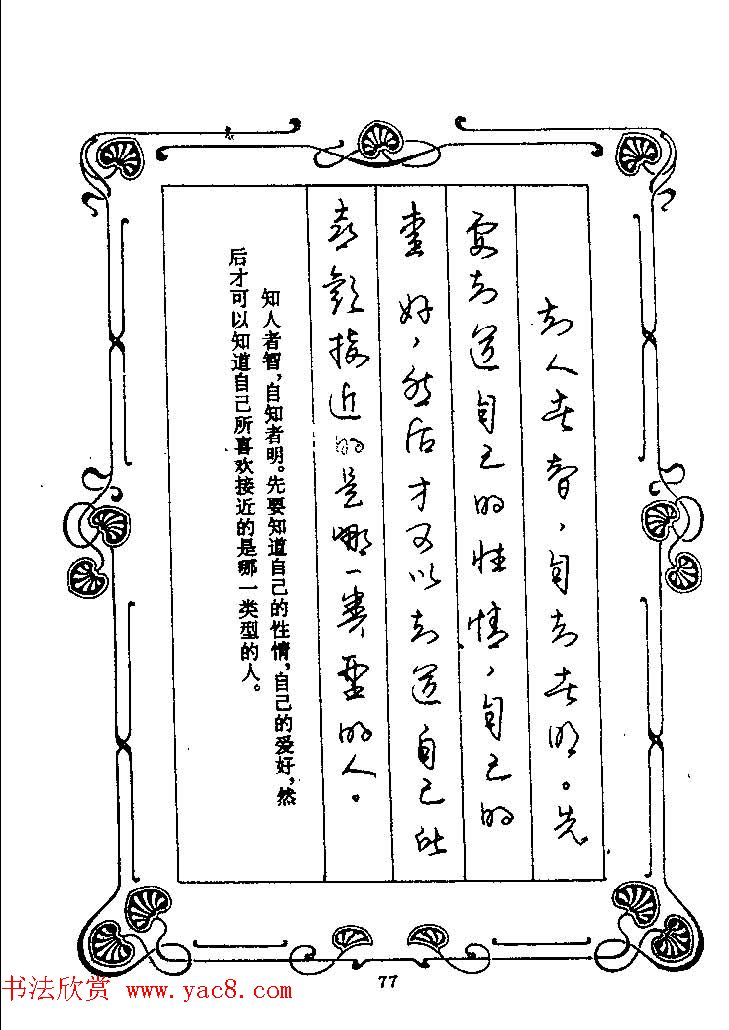 知人者智，自知者明。先
要知道自己的性情，自己的
爱好，然后才可以知道自己所
喜欢接近的是哪一类型的人。
知人者智，自知者明。先要知道自己的性情，自己的爱好，然
后才可以知道自己所喜欢接近的是哪一类型的人。
77
书法欣赏 www.yac8.com